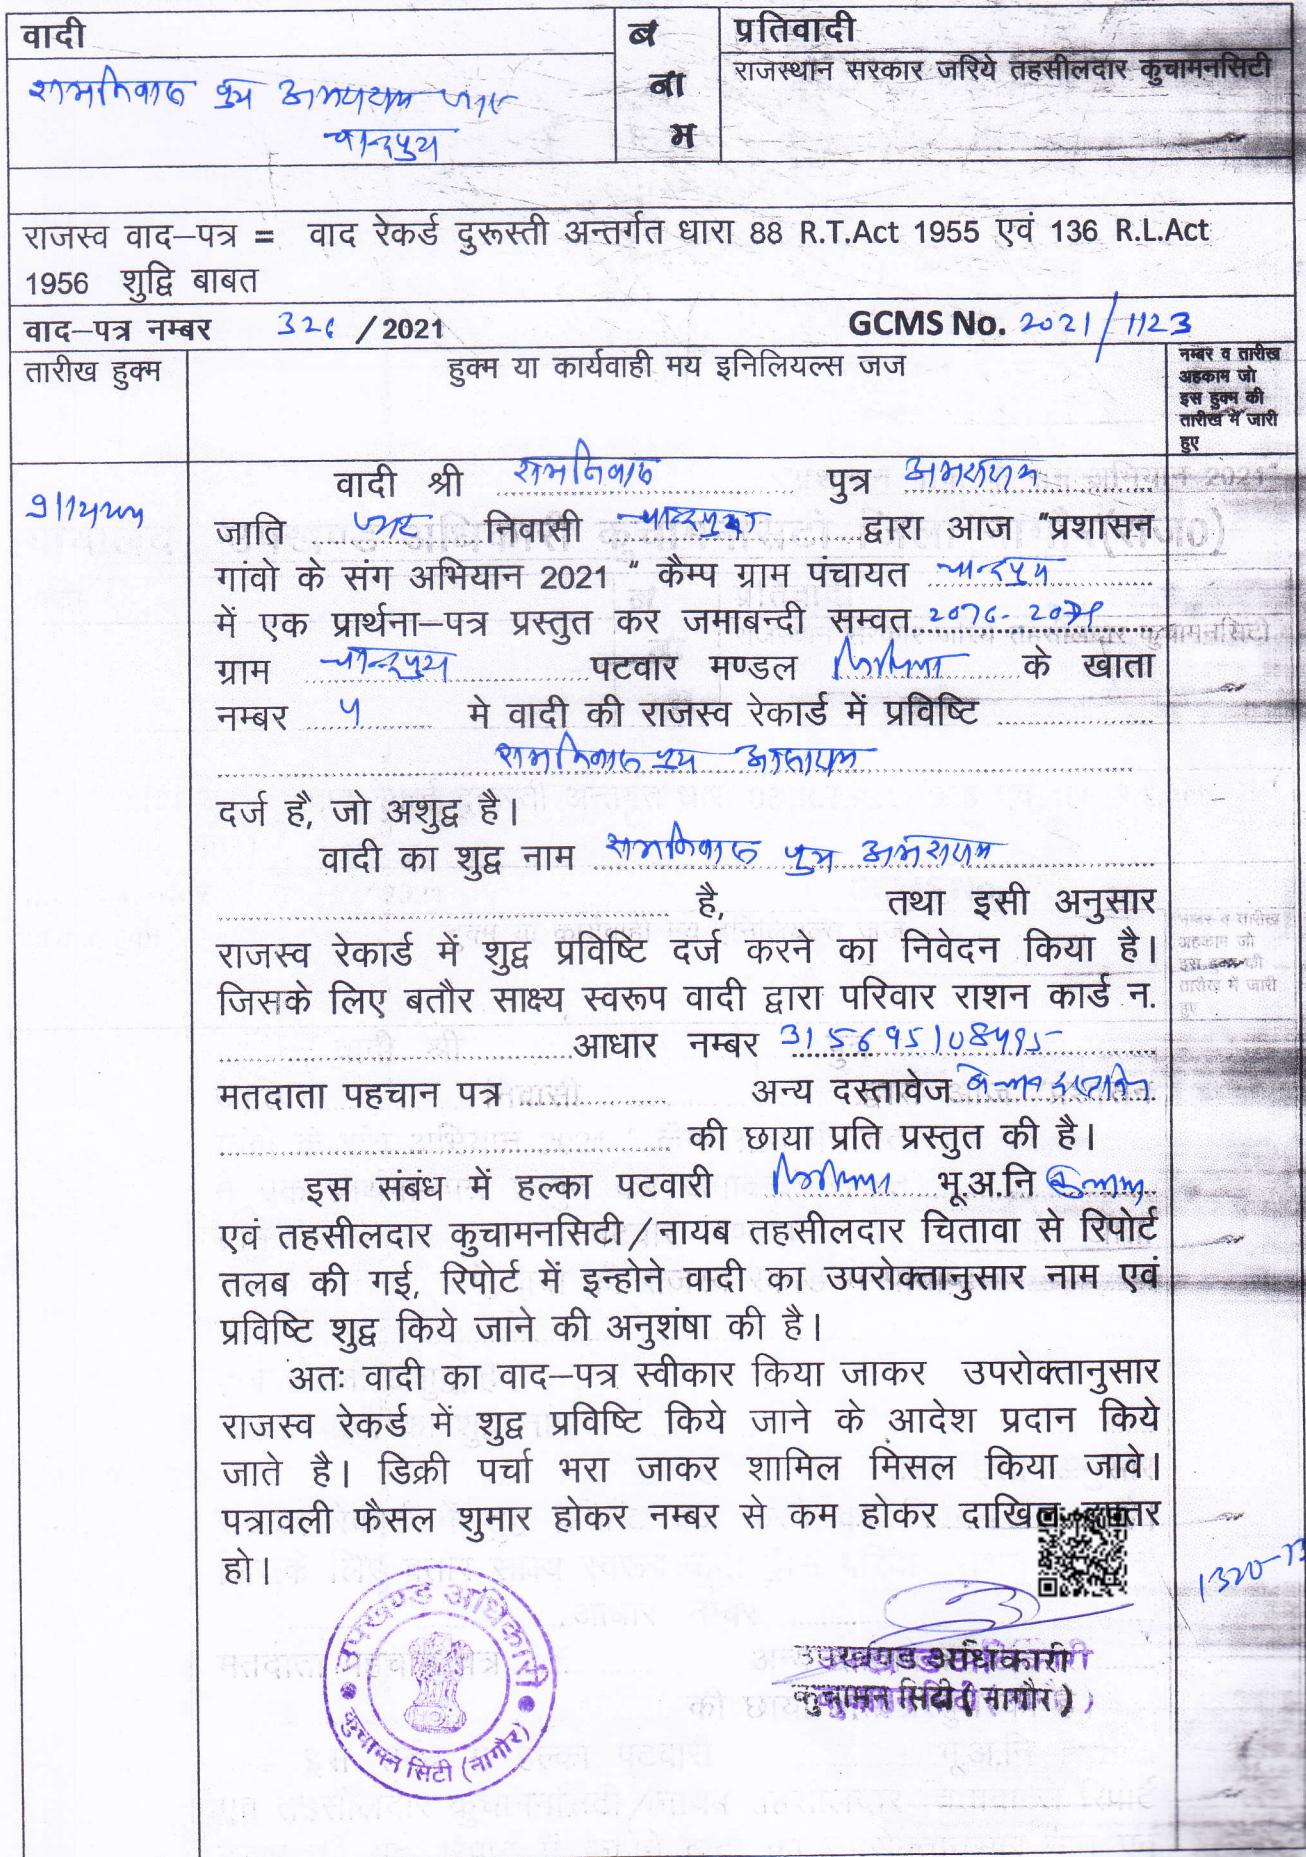 वादी
ब
ना
म
प्रतिवादी
रामनिवास पुत्र अभयराम जाट
चान्दपुरा
राजस्थान सरकार जरिये तहसीलदार कुचामनसिटी
राजस्व वाद–पत्र = वाद रेकर्ड दुरूस्ती अन्तर्गत धारा 88 R.T.Act 1955 एवं 136 R.L.Act
1956 शुद्वि बाबत
वाद–पत्र नम्बर 326 / 2021 GCMS No. 2021/1123
तारीख हुक्म
हुक्म या कार्यवाही मय इनिलियल्स जज
नम्बर व तारीख
अहकाम जो
इस हुक्म की
तारीख में जारी
हुए
वादी श्री रामनिवास पुत्र अभयराम
जाति जाट निवासी चान्दपुरा द्वारा आज "प्रशासन
गांवो के संग अभियान 2021 " कैम्प ग्राम पंचायत चान्दपुरा
में एक प्रार्थना–पत्र प्रस्तुत कर जमाबन्दी सम्वत 2076-2079
ग्राम चान्दपुरा पटवार मण्डल के खाता
नम्बर 5 मे वादी की राजस्व रेकार्ड में प्रविष्टि
रामनिवास पुत्र
दर्ज है, जो अशुद्व है।
वादी का शुद्व नाम रामनिवास पुत्र अभयराम
है, तथा इसी अनुसार
राजस्व रेकार्ड में शुद्व प्रविष्टि दर्ज करने का निवेदन किया है।
जिसके लिए बतौर साक्ष्य स्वरूप वादी द्वारा परिवार राशन कार्ड न.
आधार नम्बर 315695108495
मतदाता पहचान पत्र अन्य दस्तावेज
की छाया प्रति प्रस्तुत की है।
इस संबंध में हल्का पटवारी भू.अ.नि
एवं तहसीलदार कुचामनसिटी/नायब तहसीलदार चितावा से रिपोर्ट
तलब की गई, रिपोर्ट में इन्होने वादी का उपरोक्तानुसार नाम एवं
प्रविष्टि शुद्व किये जाने की अनुशंषा की है।
अतः वादी का वाद–पत्र स्वीकार किया जाकर उपरोक्तानुसार
राजस्व रेकर्ड में शुद्व प्रविष्टि किये जाने के आदेश प्रदान किये
जाते है। डिक्री पर्चा भरा जाकर शामिल मिसल किया जावे।
पत्रावली फैसल शुमार होकर नम्बर से कम होकर दाखिल दफ्तर
हो।
उपखण्ड अधिकारी
कुचामन सिटी (नागौर)
उपखण्ड अधिकारी
कुचामन सिटी ( नागौर )